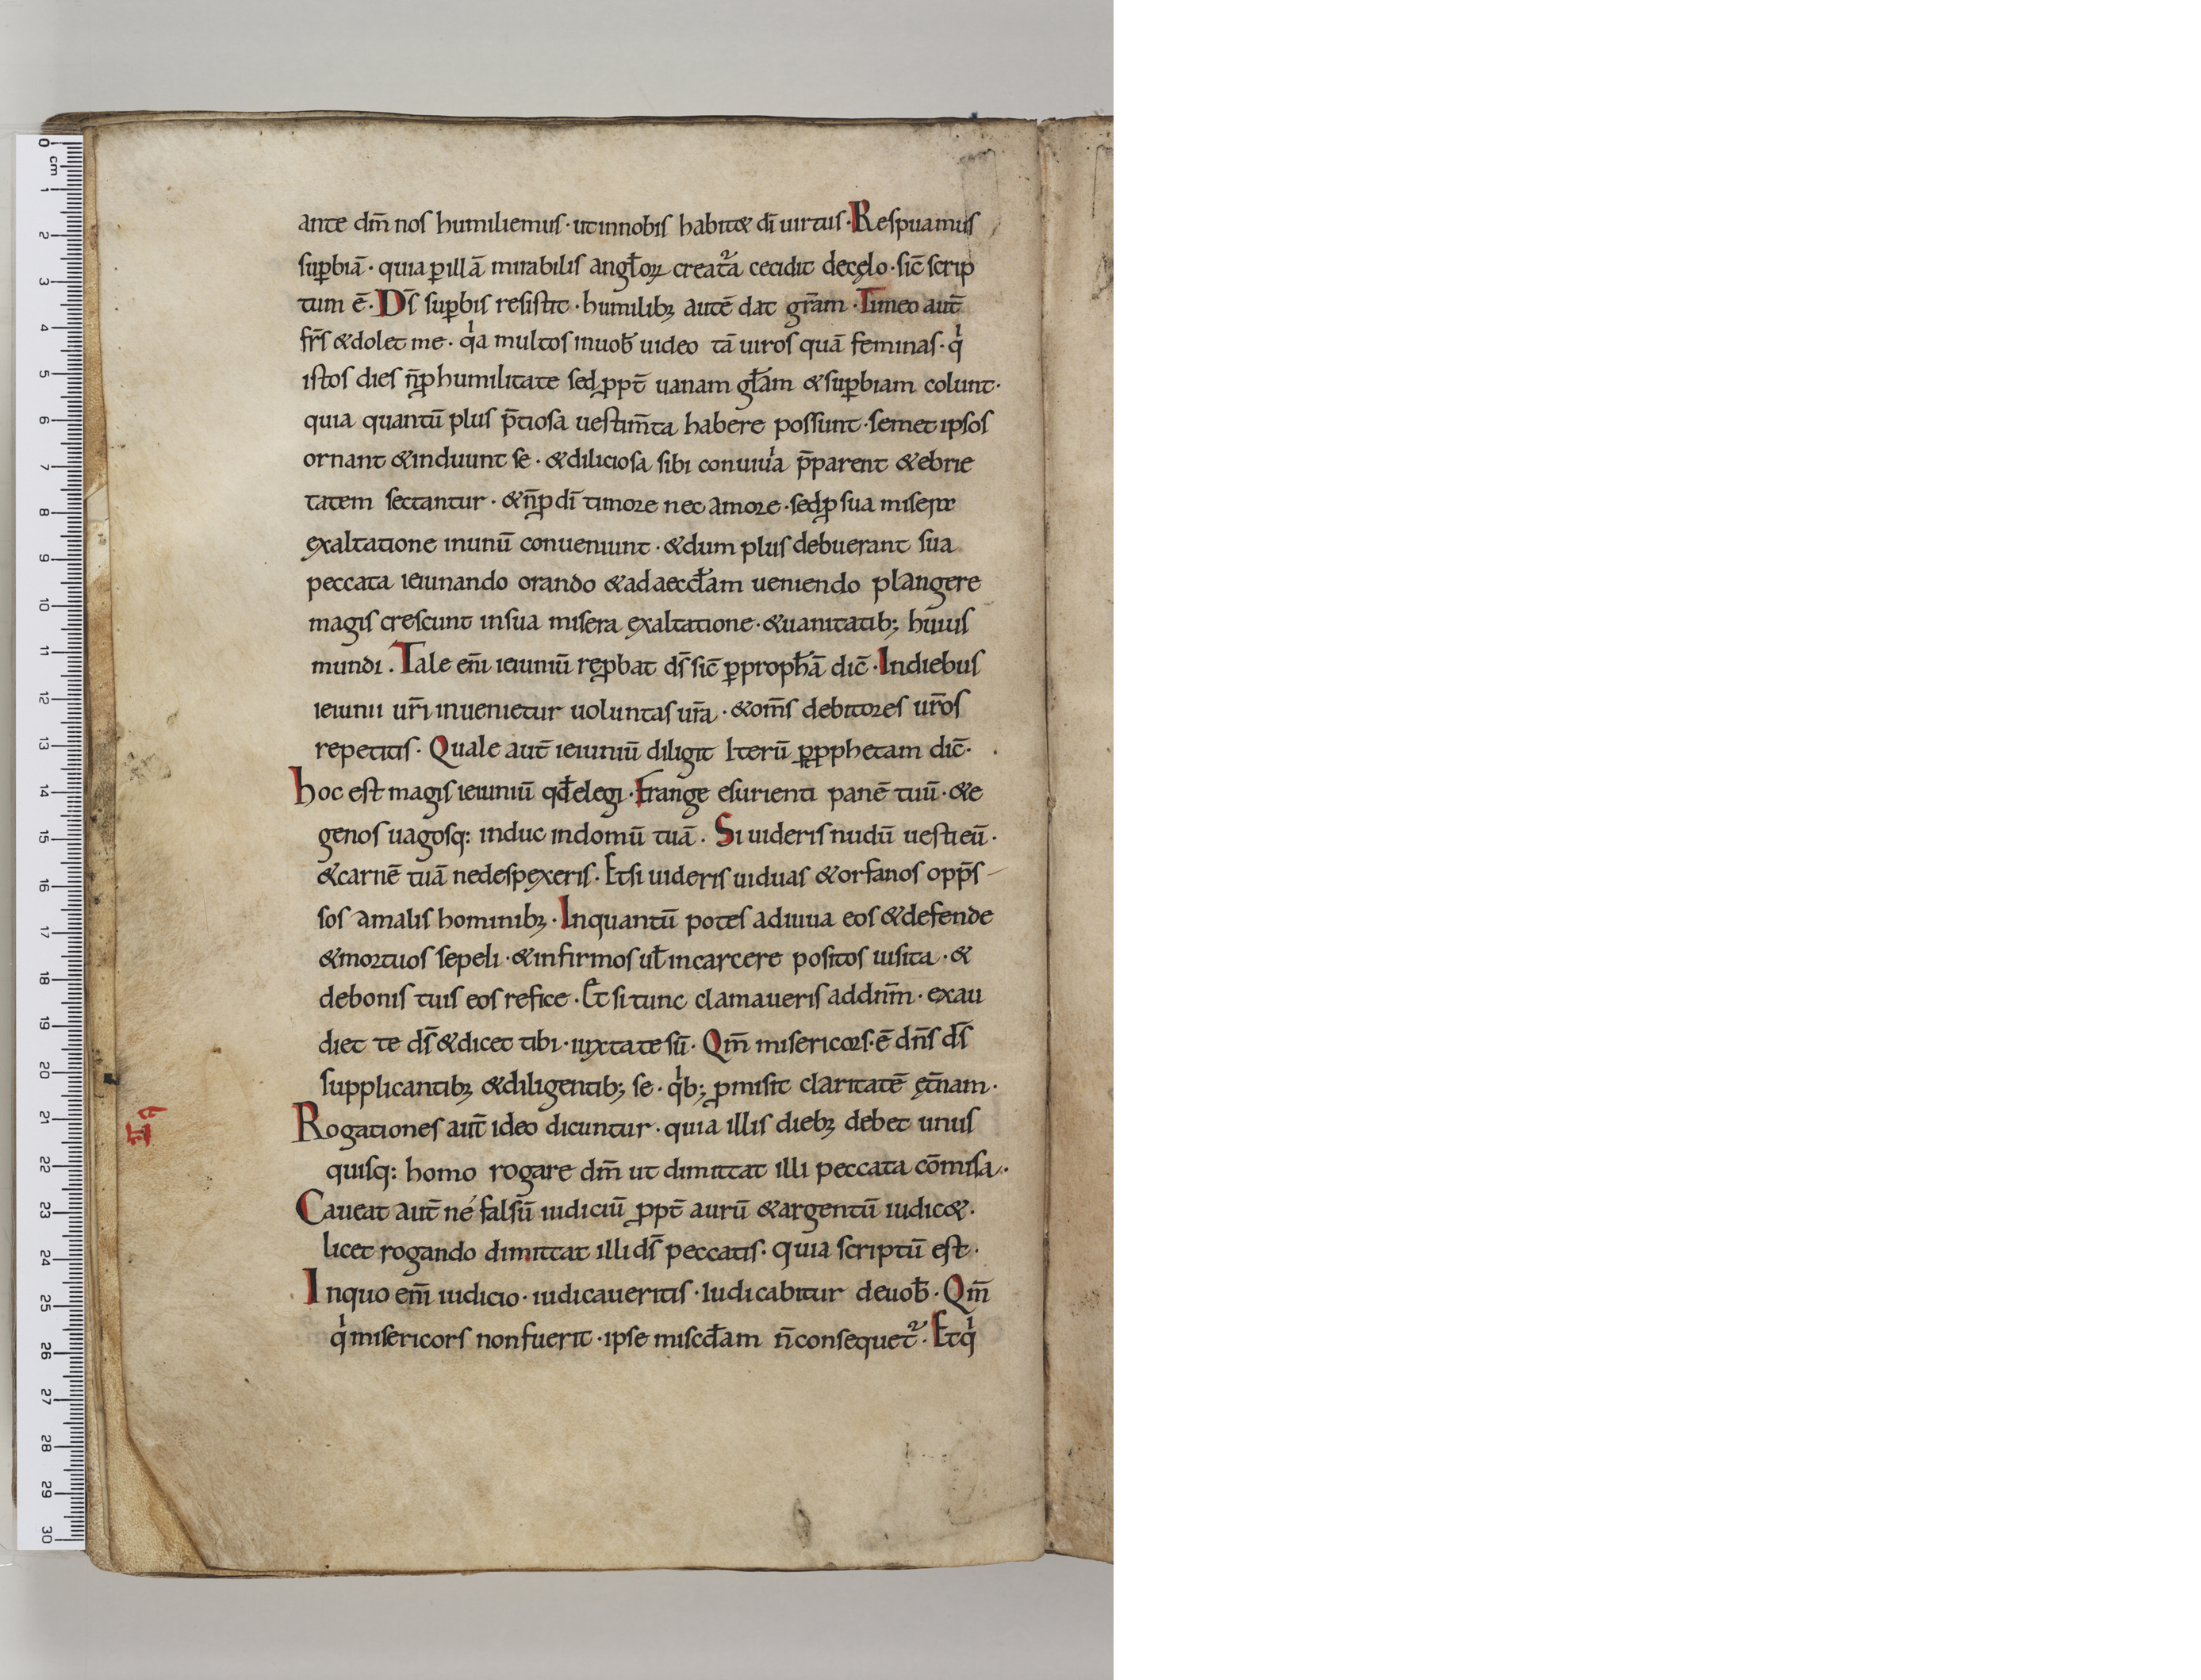 ante dm̄ nos humiliemus · ut innobis habit& dī uirtus · Respuamus
sup̲biā · quia p̲ illā mirabilis angłoꝝ creat᷑a cecidit decęlo · sic̄ scrip
tum ē · Ds̄ sup̲bis resistit · humilibꝫ autē dat gr̄am · Timeo aut̄
fr̄s & dolet me · qͥa multos inuob̄ uideo tā uiros quā feminas · qͥ
istos dies n̄ ꝓ humilitate sed ꝓpt̄ uanam gł̄am & sup̲biam colunt ·
quia quantū plus p̄tiosa uestim̄ta habere possunt · semet ipsos
ornant & induunt se · & diliciosa sibi conuiuͥa p̄parent & ebrie
tatem sectantur · & n̄ ꝓ dī timore nec amore · sed ꝓ sua miserꝛ
exaltatione inunū conueniunt · & dum plus debuerant sua
peccata ieiunando orando & adaeccł̄am ueniendo plangere
magis crescunt insua misera exaltatione · & uanitatib; huius
mundi . Tale em̄ ieiuniū reꝓbat ds̄ sic̄ p̲ proph̄ā dic̄ · Indiebus
ieiunii ur̄i inuenietur uoluntas ur̄a · & om̄s debitores ur̄os
repetitis · Quale aut̄ ieiuniū diligit Iterū p̲ ꝓphetam dic̄ ·
hoc est magis ieiuniū qđ elegi · Frange esurienti panē tuū · & e
genos uagosq: induc indomū tuā . Si uideris nudū uesti eū ·
& carnē tuā nedespexeris . Etsi uideris uiduas & orfanos opp̄s-
sos amalis hominibꝫ · Inquantū potes adiuua eos & defende
& mortuos sepeli · & infirmos uł incarcere positos uisita · &
debonis tuis eos refice . Et si tunc clamaueris addnm̄ · exau
diet te ds̄ & dicet tibi · iuxta te sū · Qm̄ misericors · ē dn̄s ds̄
supplicantibꝫ & diligentib; se · qͥb; ꝓmisit claritatē ęt̄nam ·
Rogationes aut̄ ideo dicuntur · quia illis diebꝫ debet unus
quisq: homo rogare dm̄ ut dimittat illi peccata cōmisa ·
Caueat aut̄ né falsū iudiciū ꝓpt̄ aurū & argentū iudic& ·
licet rogando dimittat illi ds̄ peccatis · quia scriptū est ·
Inquo em̄ iudicio · iudicaueritis · Iudicabitur deuob̄ · Qm̄
qͥ misericors non fuerit · ipse miscdł̄am n̄ consequet᷑ . Et qͥ